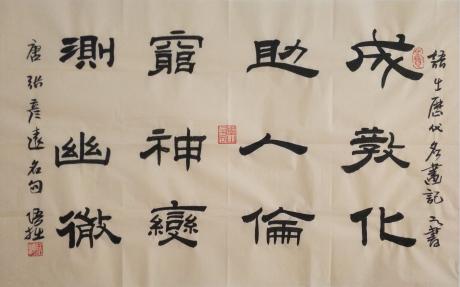 語出歷代名畫記
成教化
助人倫
窮神變
測幽微
唐張彥遠名句